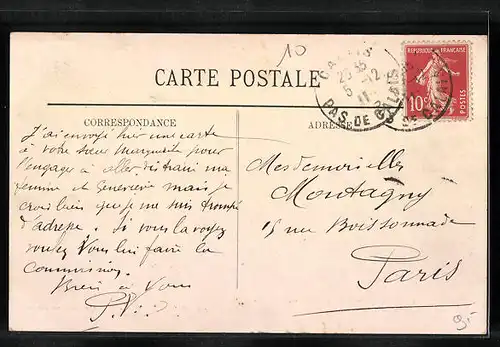 10
CARTE POSTALE
CALAIS
20 35
5 -12
11
PAS DE CALAIS
REPUBLIQUE FRANCAISE
10c
POSTES
CORRESPONDANCE
ADRESSE
J'ai envoyé hier une carte
à votre sœur Marguerite pour
l'engager à aller distraire ma
femme et Geneviève mais je
crois bien que je me suis trompé
d'adresse. Si vous la voyez
voulez vous lui faire la
commission.
Bien à vous
Mesdemoiselles
Montagny
15 rue Boissonnade
Paris